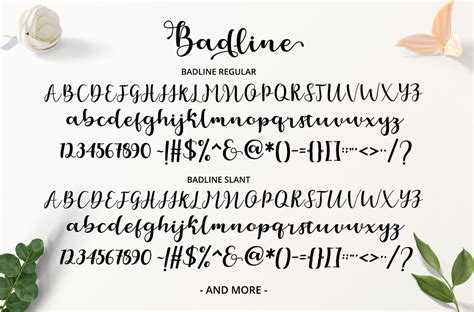 Badline
BADLINE REGULAR
ABCDEFGHIJKLMNOPQRSTUVWXYZ
abcdefghijklmnopqrstuvwxyz
1234567890 ~!#$%^&@*()-={}[]:<>-/?
BADLINE SLANT
ABCDEFGHIJKLMNOPQRSTUVWXYZ
abcdefghijklmnopqrstuvwxyz
1234567890 ~!#$%^&@*()-={}[]:<>-/?
- AND MORE -